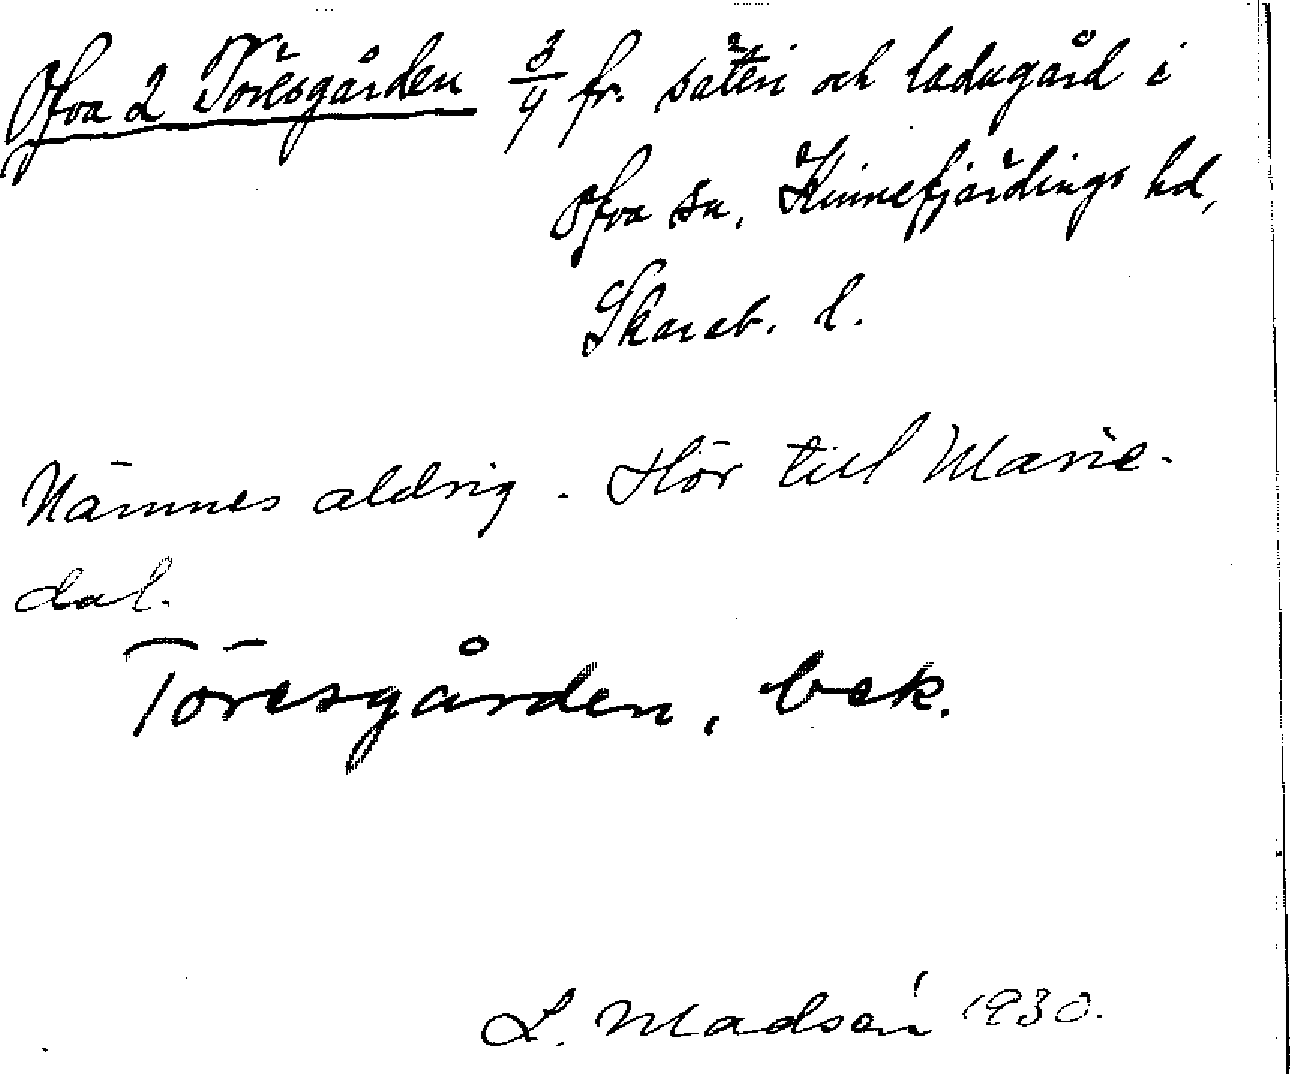 Ova 2 Töresgården 3/4 fr. säteri och ladugård i
Ova sn, Kinnefjärdings hd,
Skarab. l.
Nämnes aldrig. Hör till Marie-
dal.
Töresgården, bek.
L. Madsén 1930.